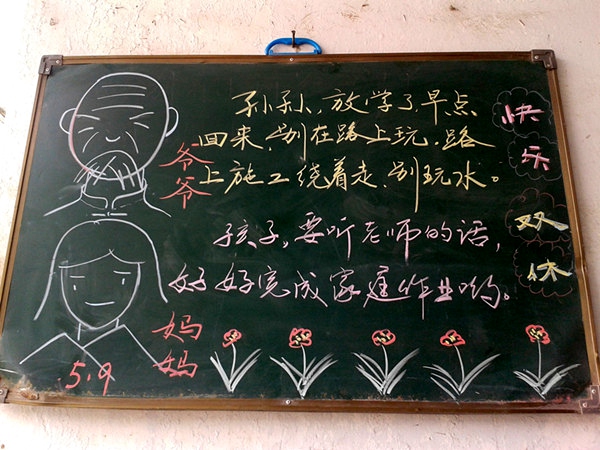 孙孙，放学了早点
回来，别在路上玩，路
上施工绕着走，别玩水。
爷爷
孩子，要听老师的话，
好好完成家庭作业哟。
妈妈
快乐双休
5.9